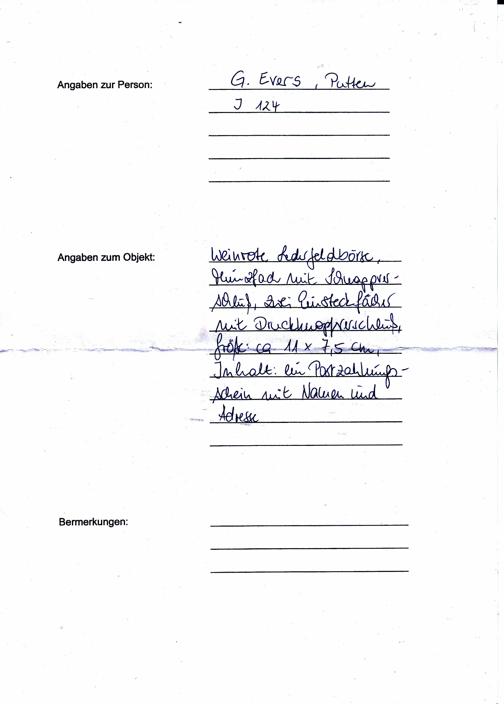 Angaben zur Person:
G. Evers, Putten
J 124
Angaben zum Objekt:
Weinrote Ledergeldbörse,
Münzfach mit Schnappver-
schluß, zwei Einsteckfächer
mit Druckknopfverschluß,
Größe: ca 11 x 7,5 cm,
Inhalt: ein Postzahlungs-
schein mit Namen und
Adresse
Bermerkungen: